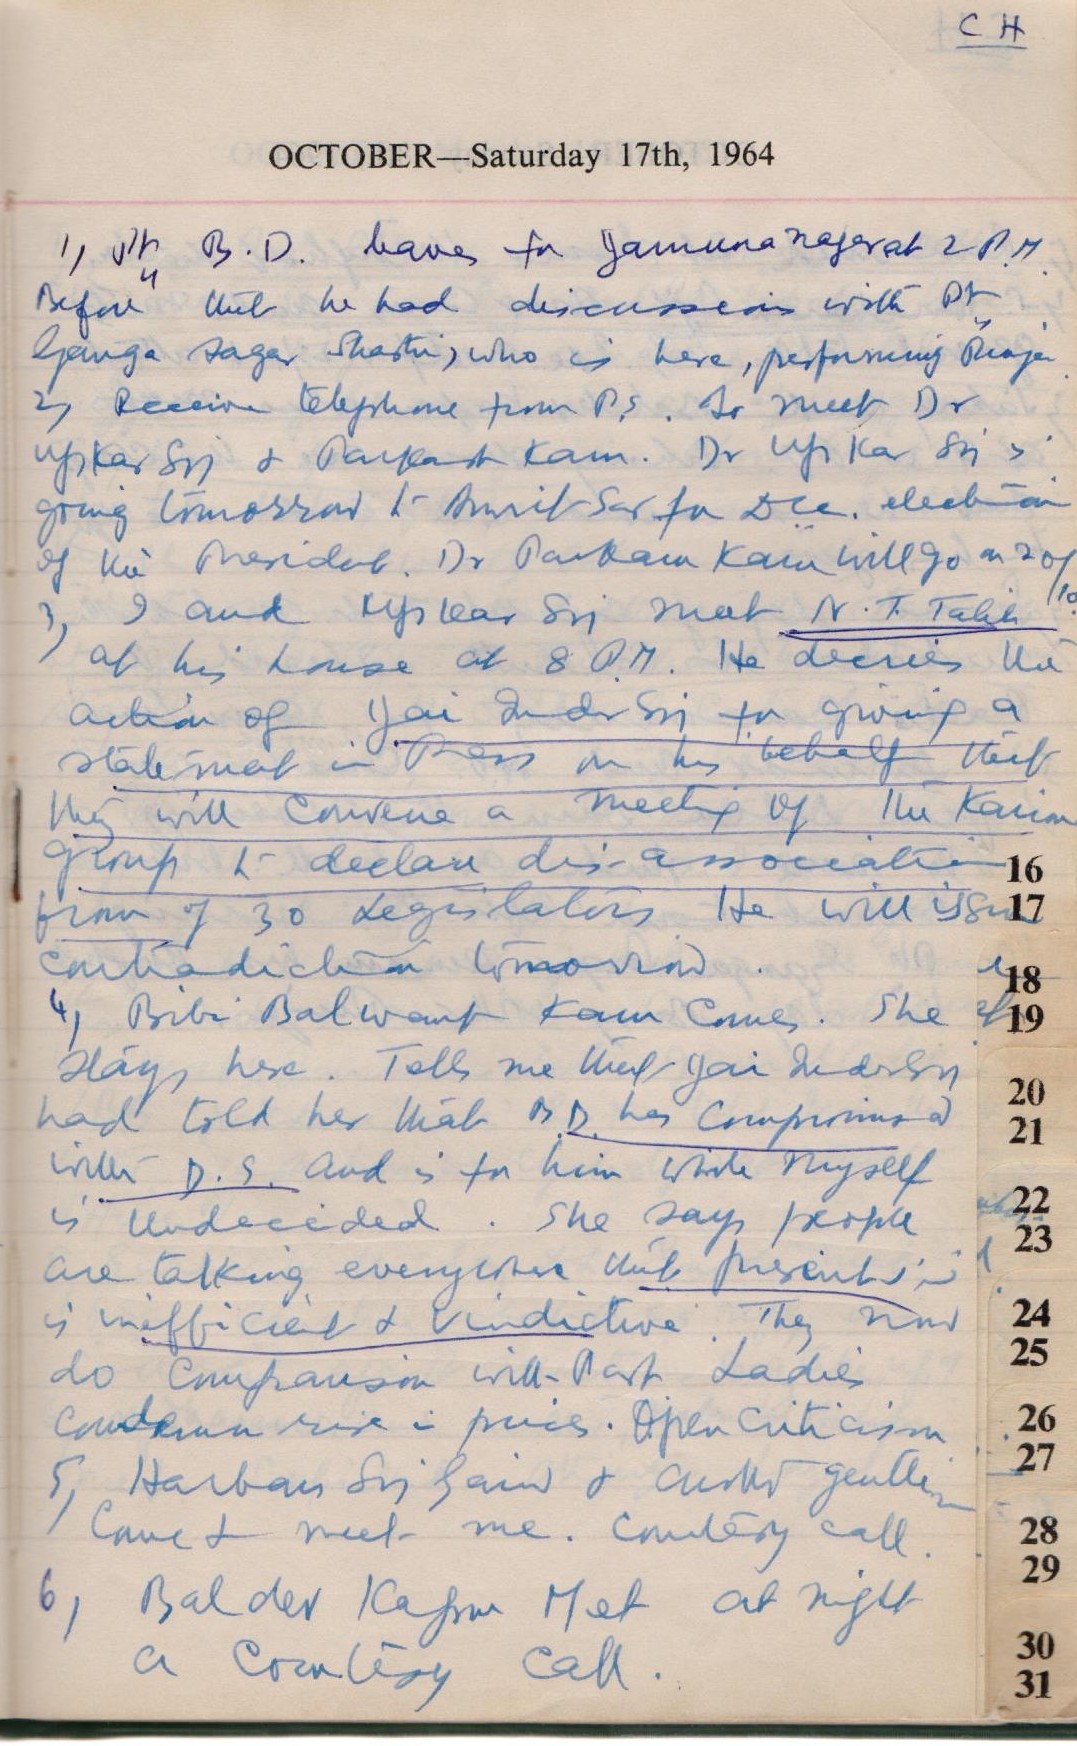 C H
OCTOBER—Saturday 17th, 1964
1, Pt B.D. leaves for Yamuna Nagar at 2 P.M.
Before that he had discussions with Pt
Ganga Sagar Shastri, who is here, performing Pooja
2, Receive telephone from P.S. to meet Dr
Upkar Sij & Parkash Kaur. Dr Upkar Sij is
going tomorrow to Amritsar for Dcc. election
of the President. Dr Parkash Kaur will go on 20/10.
3, I and Upkar Sij meet N. T. Talib
at his house at 8 P.M. He decries the
action of Yai Inder Sij for giving a
statement in Press on his behalf that
they will convene a meeting of the Kairon
group to declare dis-association
from of 30 Legislators He will issue
contradiction tomorrow.
4, Bibi Balwant Kaur comes. She
stays here. Tells me that Yai Inder Sij
had told her that B.D. has compromised
with D.S. and is for him while myself
is undecided. She says people
are talking everywhere that present
is inefficient & vindictive. They now
do comparison with Past Ladies
condemn rise in prices. Open criticism
5, Harbans Sij Saini & another gentleman
come & meet me. Courtesy call.
6, Baldev Kapur Met at night
a Courtesy call.
16
17
18
19
20
21
22
23
24
25
26
27
28
29
30
31